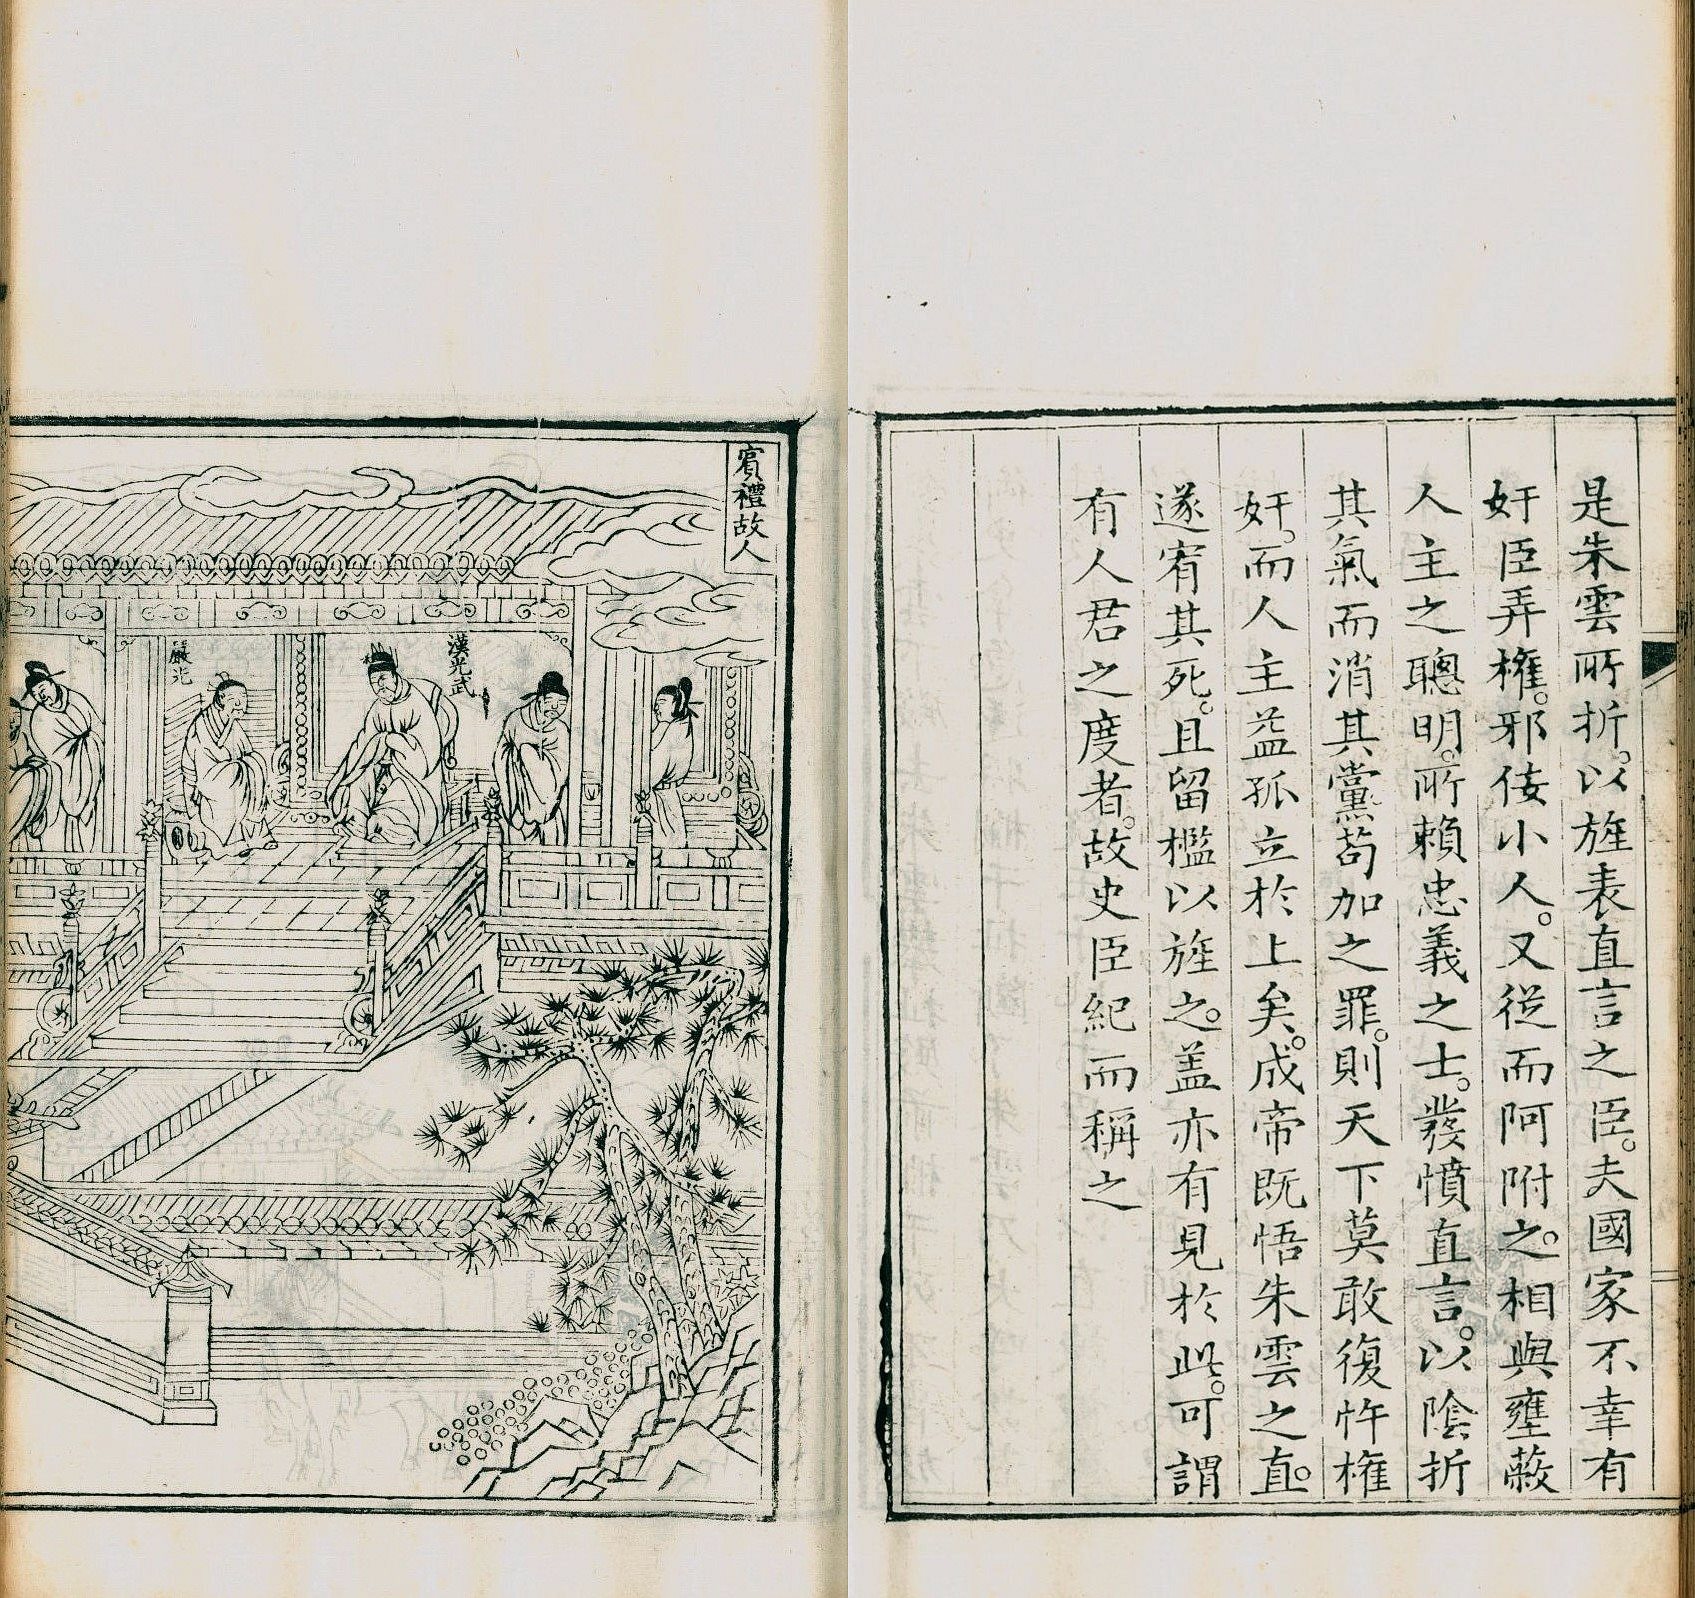 是朱雲所折。以旌表直言之臣。夫國家不幸有
奸臣弄權。邪佞小人。又從而阿附之。相與壅蔽
人主之聰明。所賴忠義之士。發憤直言。以陰折
其氣而消其黨。苟加之罪。則天下莫敢復忤權
奸。而人主益孤立於上矣。成帝既悟朱雲之直。
遂宥其死。且留檻以旌之。盖亦有見於此。可謂
有人君之度者。故史臣紀而稱之
賓禮故人
漢光武
嚴光